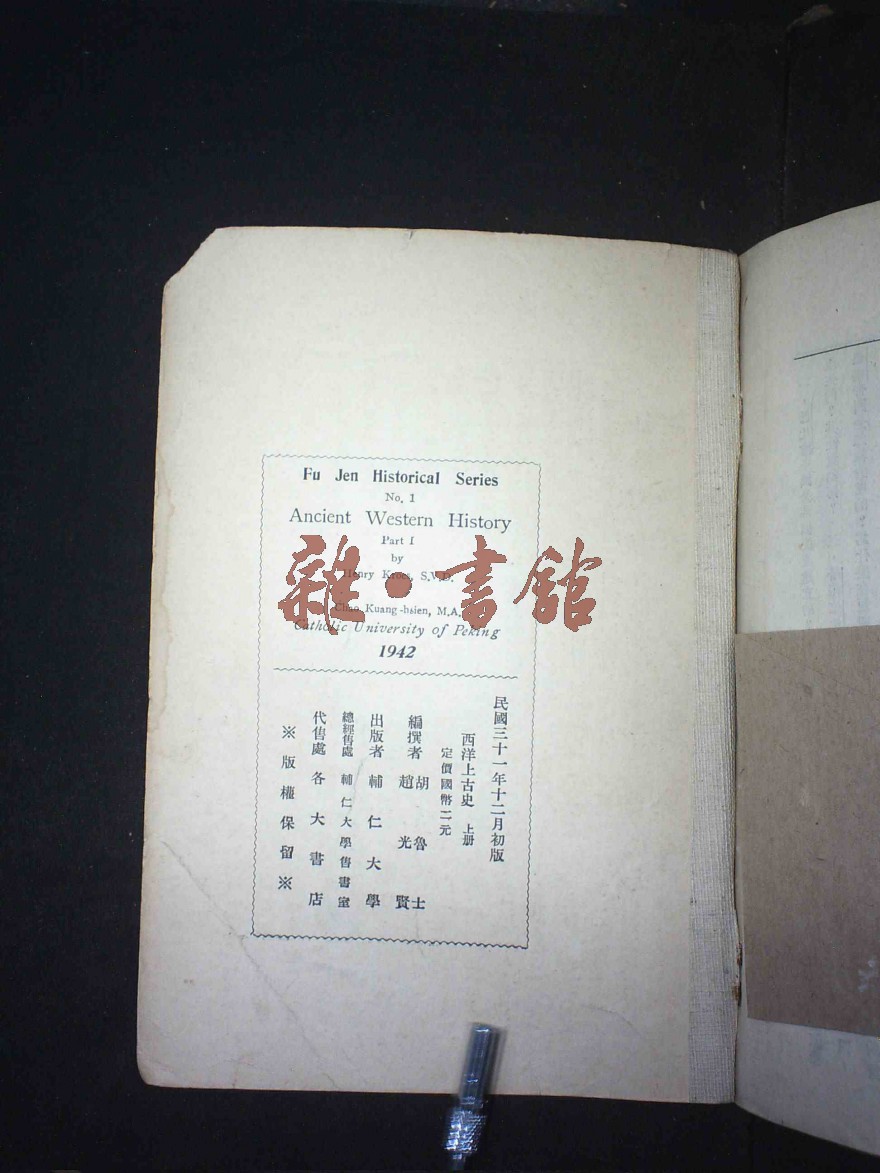 Fu Jen Historical Series
No. 1
Ancient Western History
Part I
by
Henry Kroes, S.V.D.
Chao Kuang-hsien, M.A.
Catholic University of Peking
1942
雜·書館
民國三十一年十二月初版
西洋上古史 上册
定價國幣二元
編撰者 胡魯士
趙光賢
出版者 輔仁大學
總經售處 輔仁大學售書室
代售處 各大書店
※版權保留※